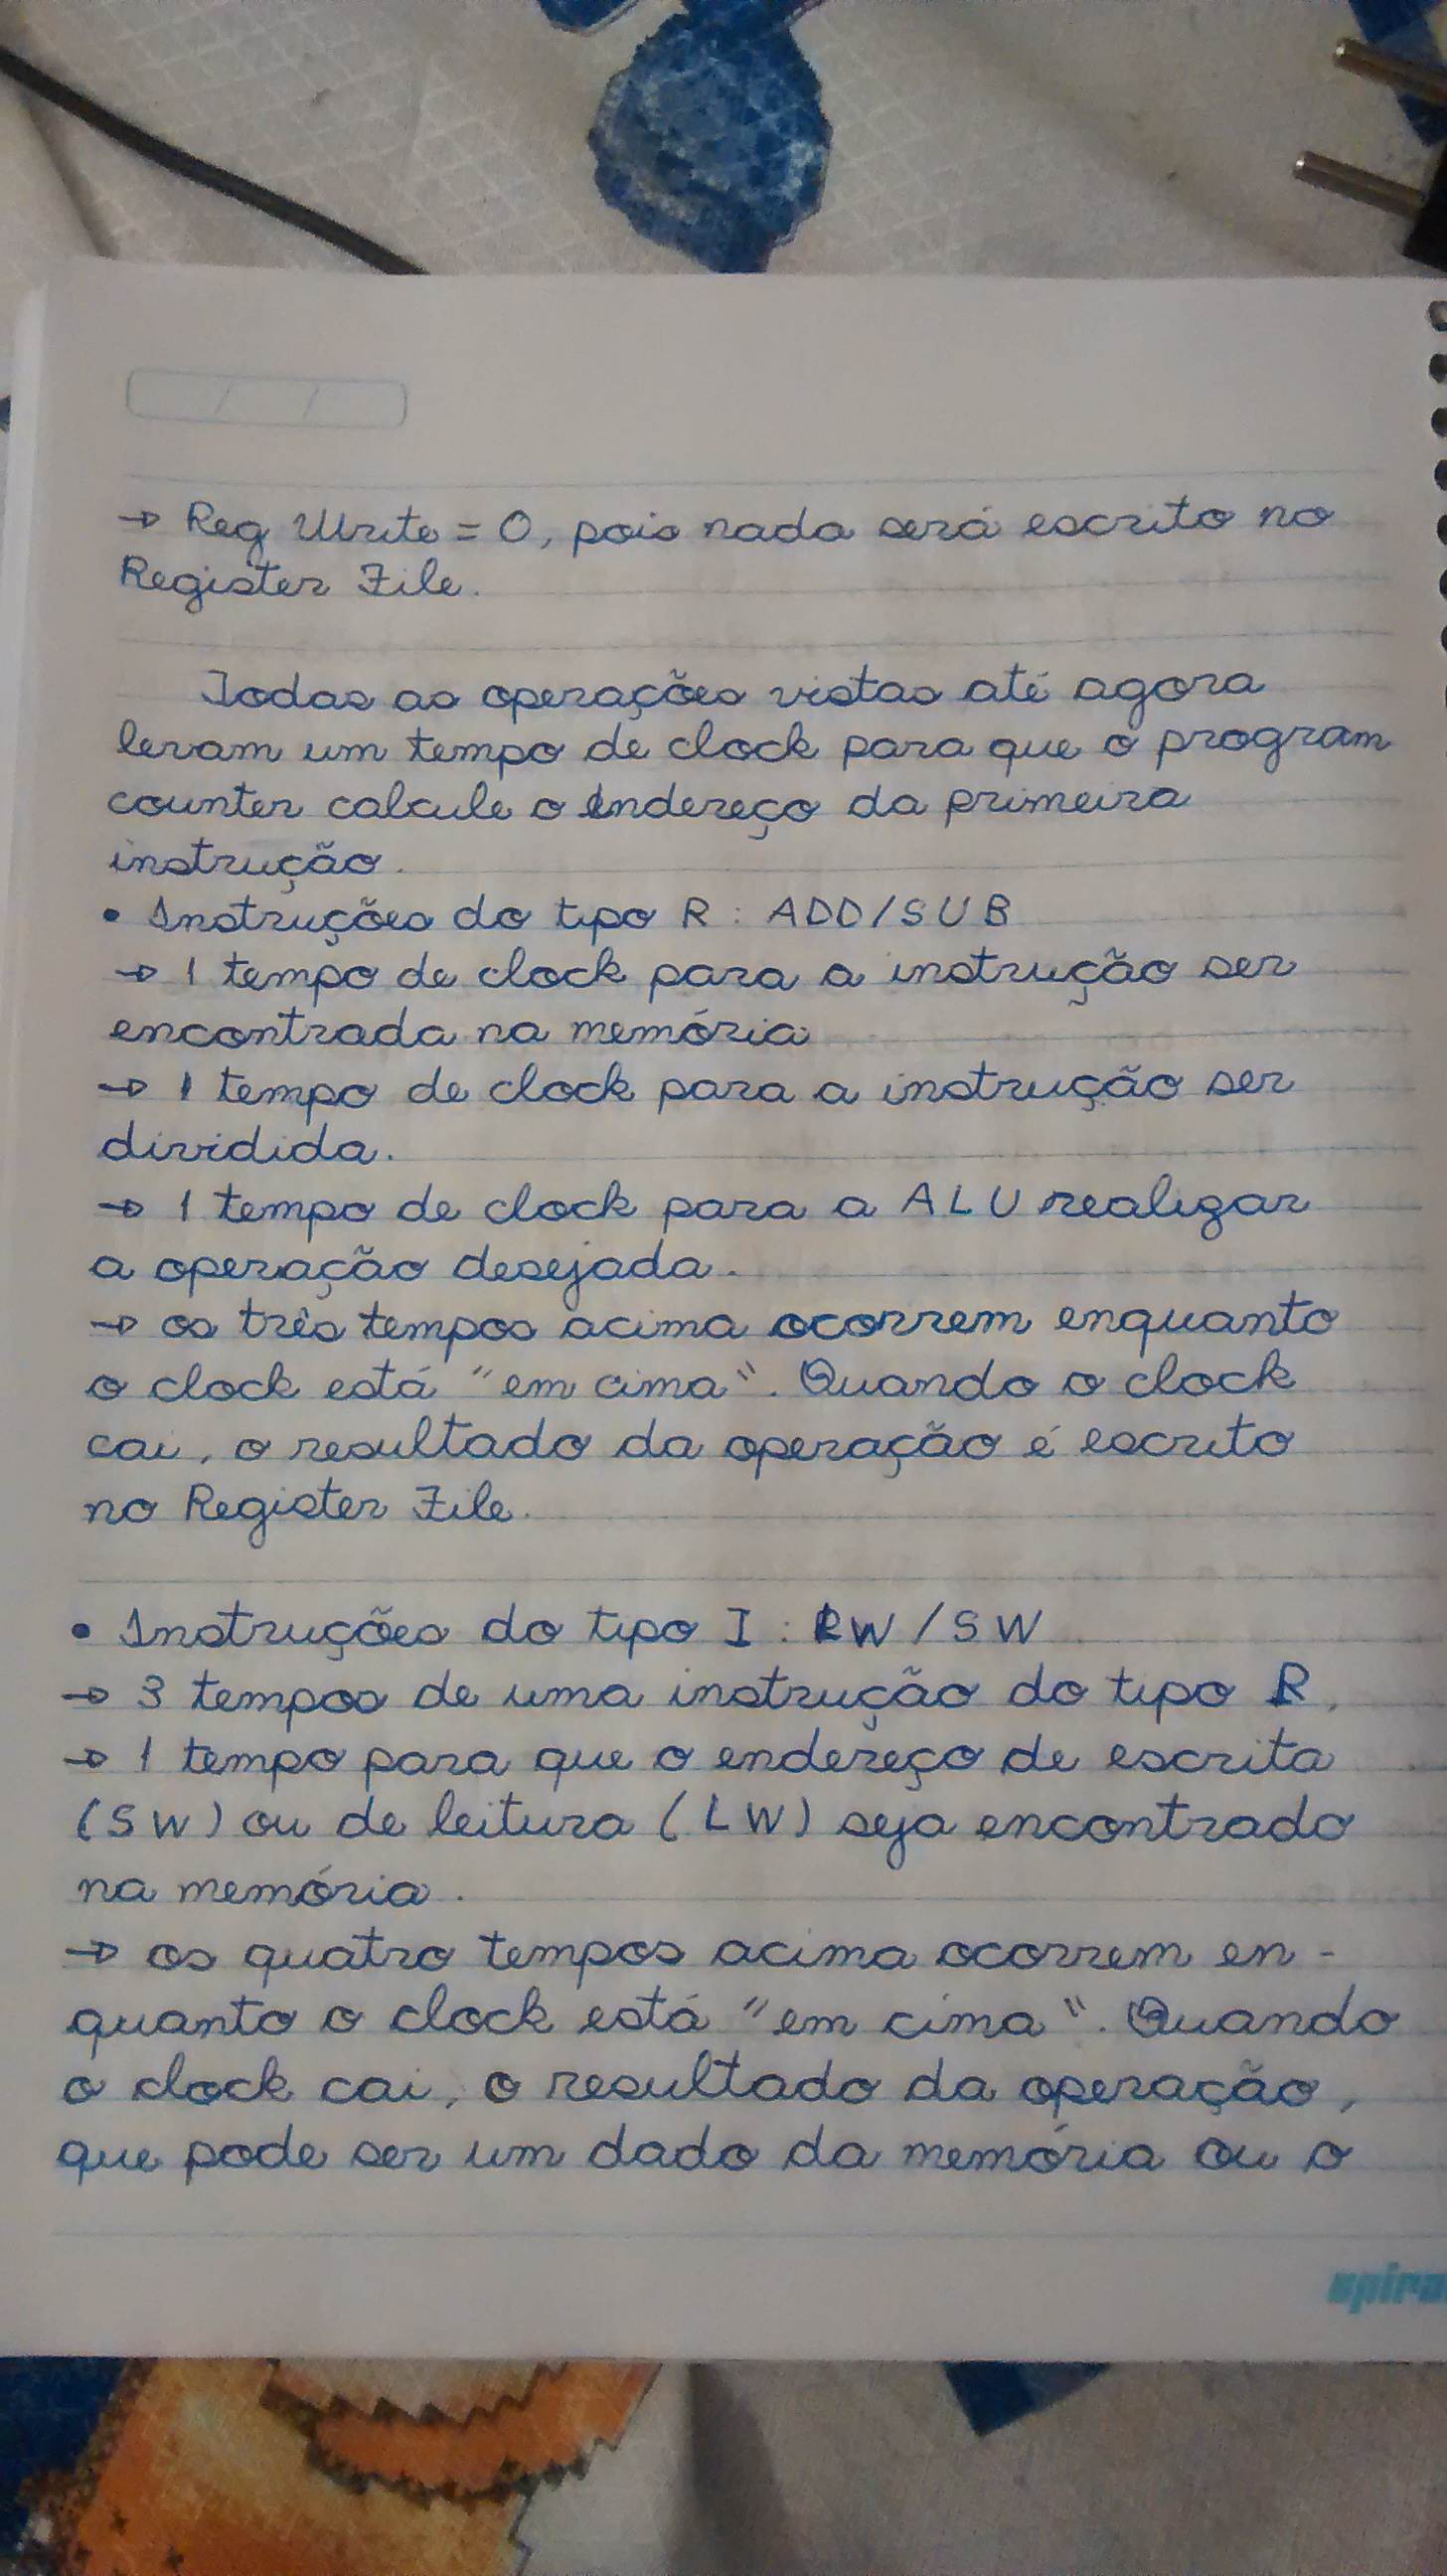 → Reg Write = 0, pois nada será escrito no
Register File.
Todas as operações vistas até agora
levam um tempo de clock para que o program
counter calcule o endereço da primeira
instrução.
• Instruções do tipo R: ADD/SUB
→ 1 tempo de clock para a instrução ser
encontrada na memória
→ 1 tempo de clock para a instrução ser
dividida.
→ 1 tempo de clock para a ALU realizar
a operação desejada.
→ os três tempos acima ocorrem enquanto
o clock está "em cima". Quando o clock
cai, o resultado da operação é escrito
no Register File.
• Instruções do tipo I: LW/SW
→ 3 tempos de uma instrução do tipo R.
→ 1 tempo para que o endereço de escrita
(SW) ou de leitura (LW) seja encontrado
na memória.
→ os quatro tempos acima ocorrem en-
quanto o clock está "em cima". Quando
o clock cai, o resultado da operação,
que pode ser um dado da memória ou o